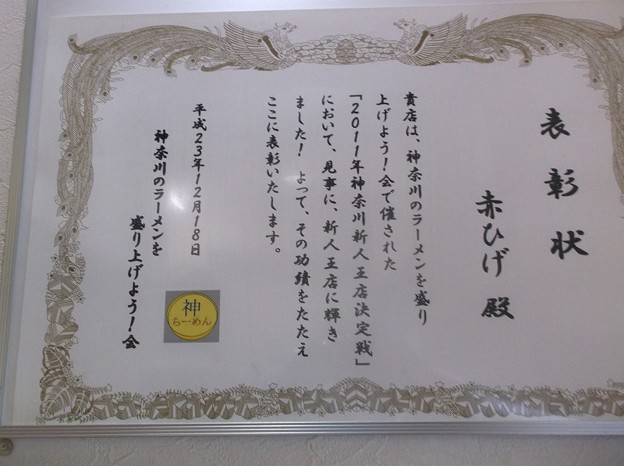 表彰状
赤ひげ 殿
貴店は、神奈川のラーメンを盛り
上げよう!会で催された
「2011年神奈川新人王店決定戦」
において、見事に、新人王店に輝き
ました! よって、その功績をたたえ
ここに表彰いたします。
平成23年12月18日
神奈川のラーメンを
盛り上げよう!会
神
らーめん